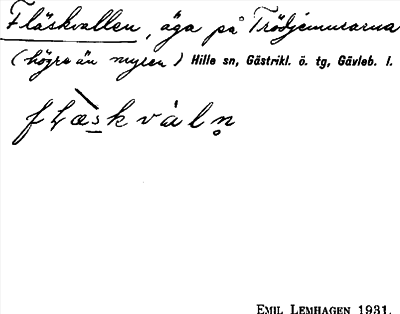 Fläskvallen, äga på Trödjemurarna
(högre än myren) Hille sn, Gästrikl. ö. tg, Gävleb. l.
flæskvàln̥
EMIL LEMHAGEN 1931.